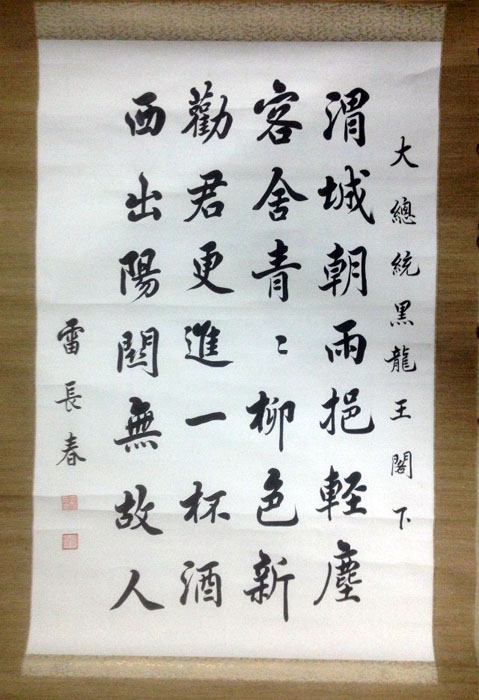 大總統黑龍王閣下
渭城朝雨挹輕塵
客舍青〻柳色新
勸君更進一杯酒
西出陽関無故人
雷長春